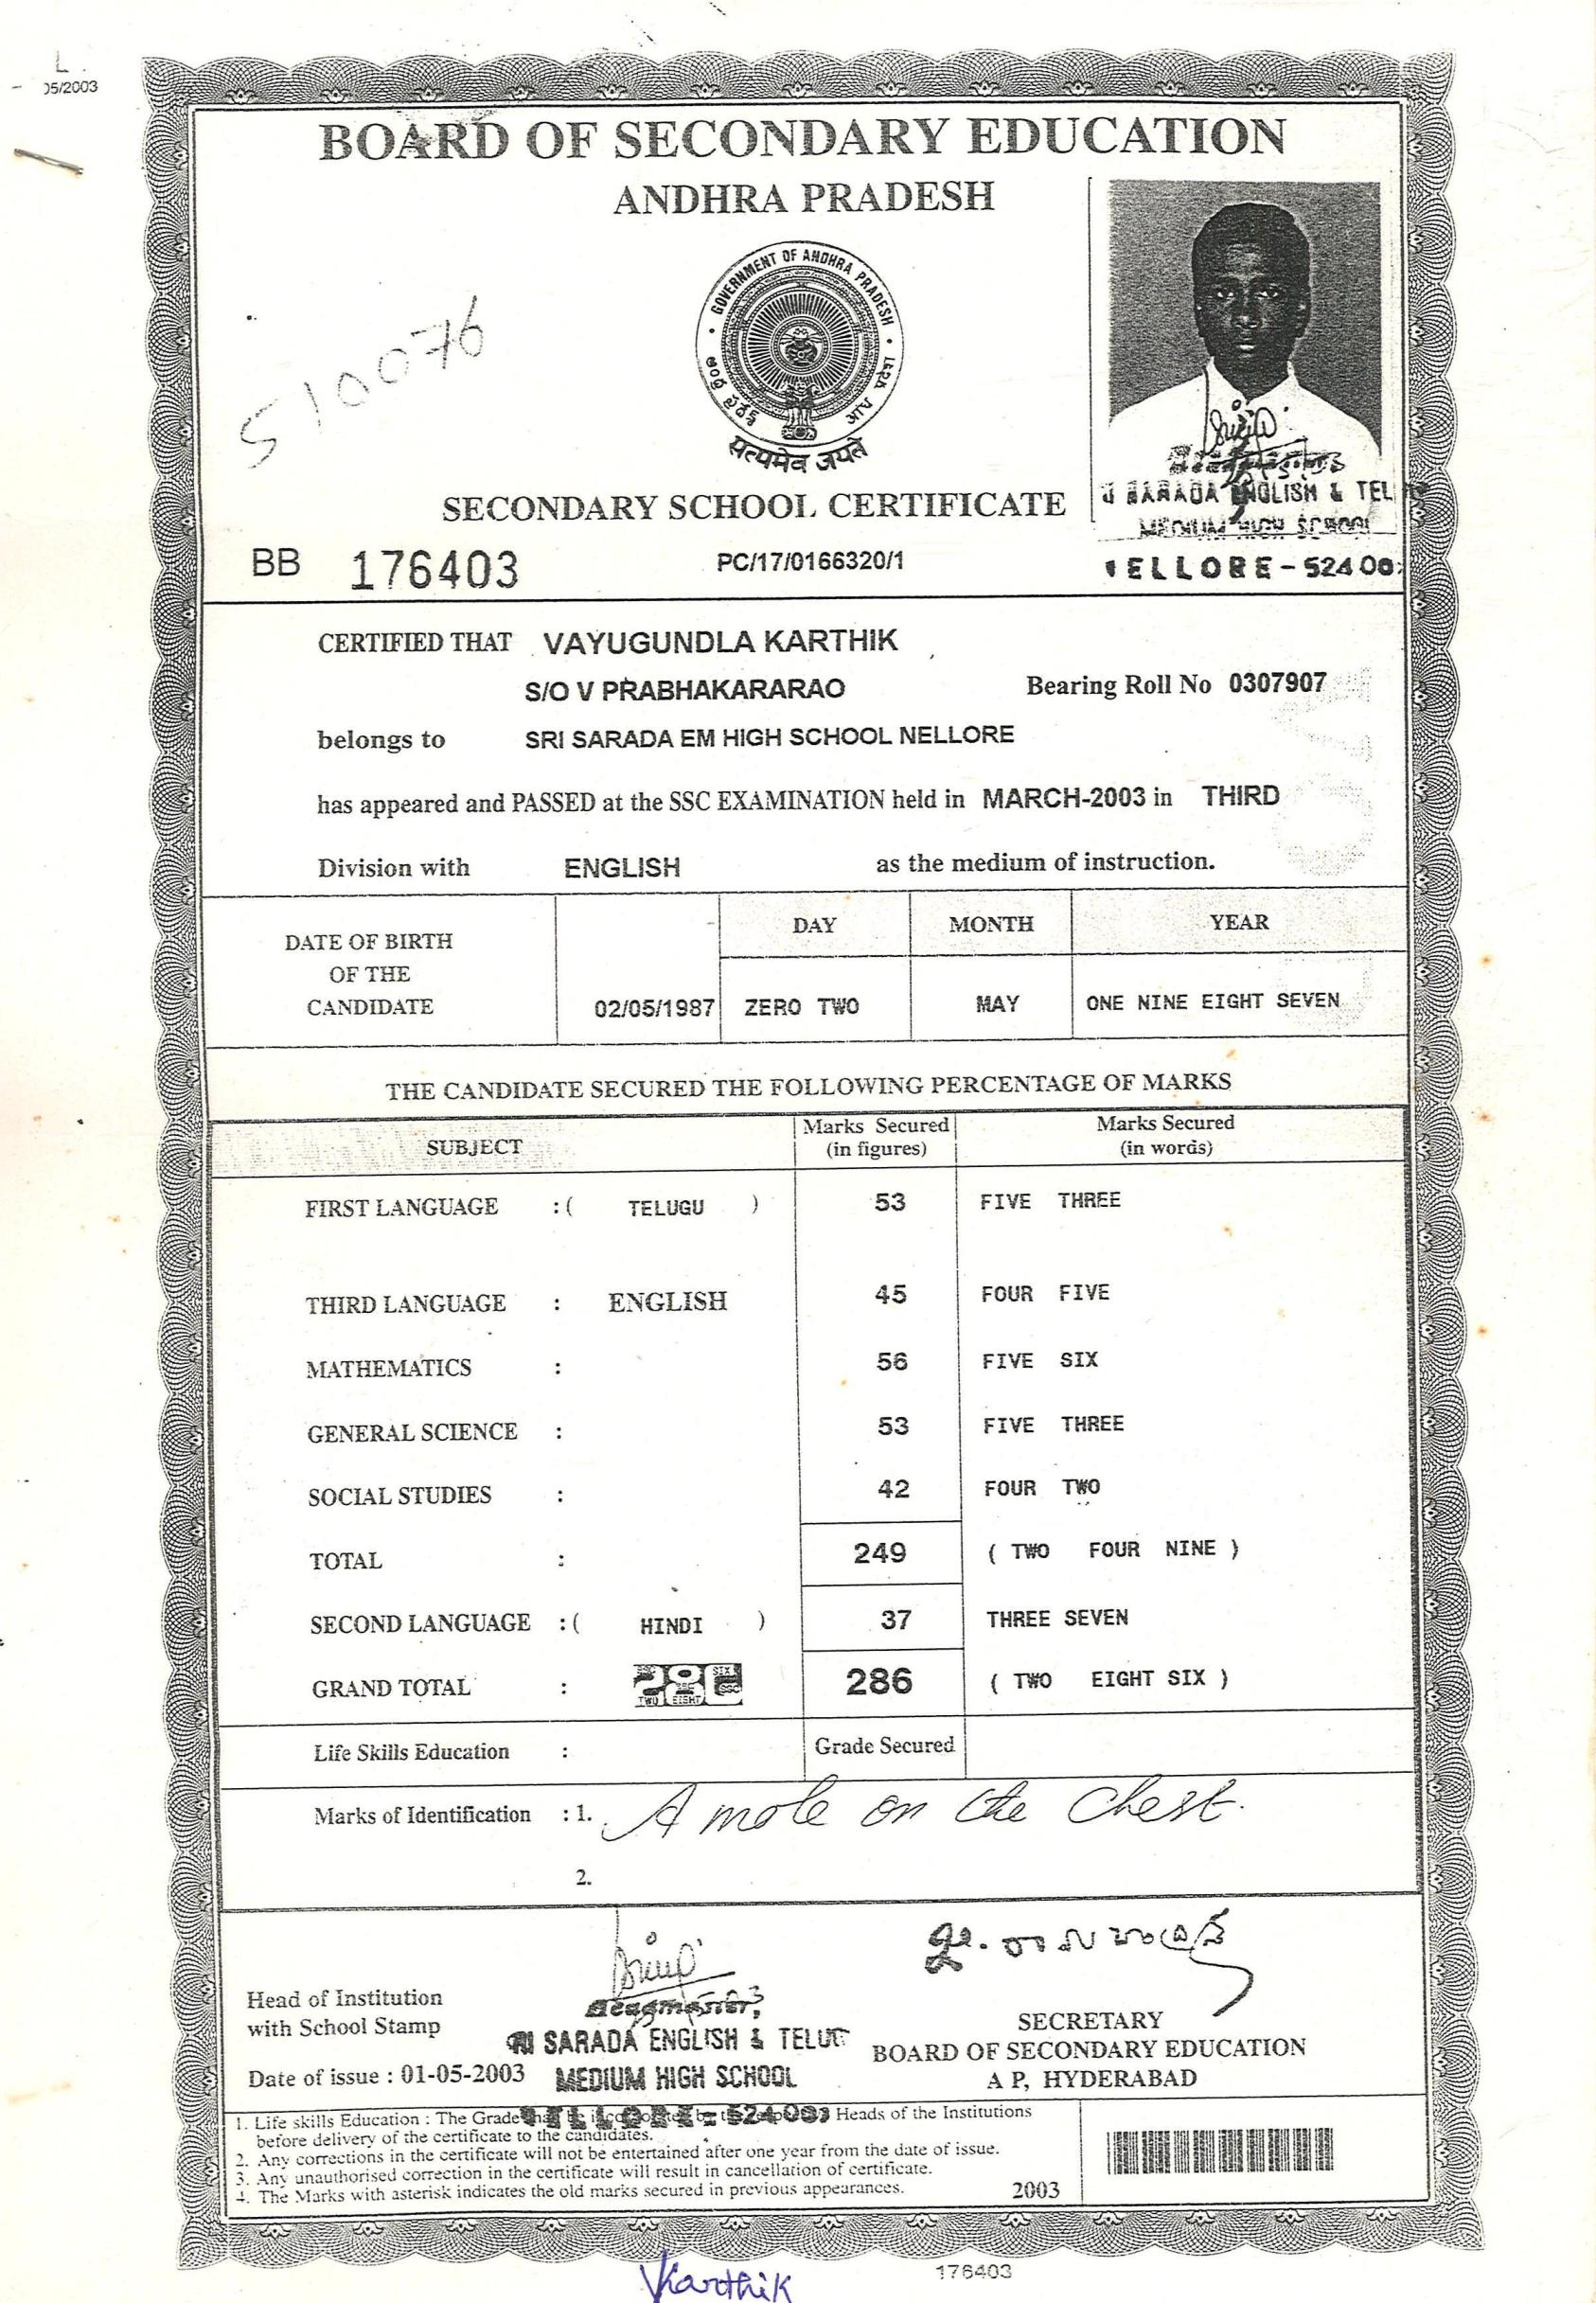 05/2003
BOARD OF SECONDARY EDUCATION
ANDHRA PRADESH
GOVERNMENT OF ANDHRA PRADESH
सत्यमेव जयते
510076
SECONDARY SCHOOL CERTIFICATE
SARADA ENGLISH & TEL
MEDIUM HIGH SCHOOL
ELLORE-524 00
BB 176403 PC/17/0166320/1
CERTIFIED THAT VAYUGUNDLA KARTHIK
S/O V PRABHAKARARAO Bearing Roll No 0307907
belongs to SRI SARADA EM HIGH SCHOOL NELLORE
has appeared and PASSED at the SSC EXAMINATION held in MARCH-2003 in THIRD
Division with ENGLISH as the medium of instruction.
DATE OF BIRTH
OF THE
CANDIDATE
DAY MONTH YEAR
02/05/1987 ZERO TWO MAY ONE NINE EIGHT SEVEN
THE CANDIDATE SECURED THE FOLLOWING PERCENTAGE OF MARKS
SUBJECT Marks Secured (in figures) Marks Secured (in words)
FIRST LANGUAGE :( TELUGU ) 53 FIVE THREE
THIRD LANGUAGE : ENGLISH 45 FOUR FIVE
MATHEMATICS : 56 FIVE SIX
GENERAL SCIENCE : 53 FIVE THREE
SOCIAL STUDIES : 42 FOUR TWO
TOTAL : 249 ( TWO FOUR NINE )
SECOND LANGUAGE :( HINDI ) 37 THREE SEVEN
GRAND TOTAL : 286 ( TWO EIGHT SIX )
Life Skills Education : Grade Secured
Marks of Identification : 1. A mole on the chest.
2.
Head of Institution
with School Stamp
Headmaster,
SARADA ENGLISH & TELUG
MEDIUM HIGH SCHOOL
Date of issue : 01-05-2003
SECRETARY
BOARD OF SECONDARY EDUCATION
A P, HYDERABAD
1. Life skills Education : The Grade Heads of the Institutions
before delivery of the certificate to the candidates.
2. Any corrections in the certificate will not be entertained after one year from the date of issue.
3. Any unauthorised correction in the certificate will result in cancellation of certificate.
4. The Marks with asterisk indicates the old marks secured in previous appearances.
2003
VKarthik
176403